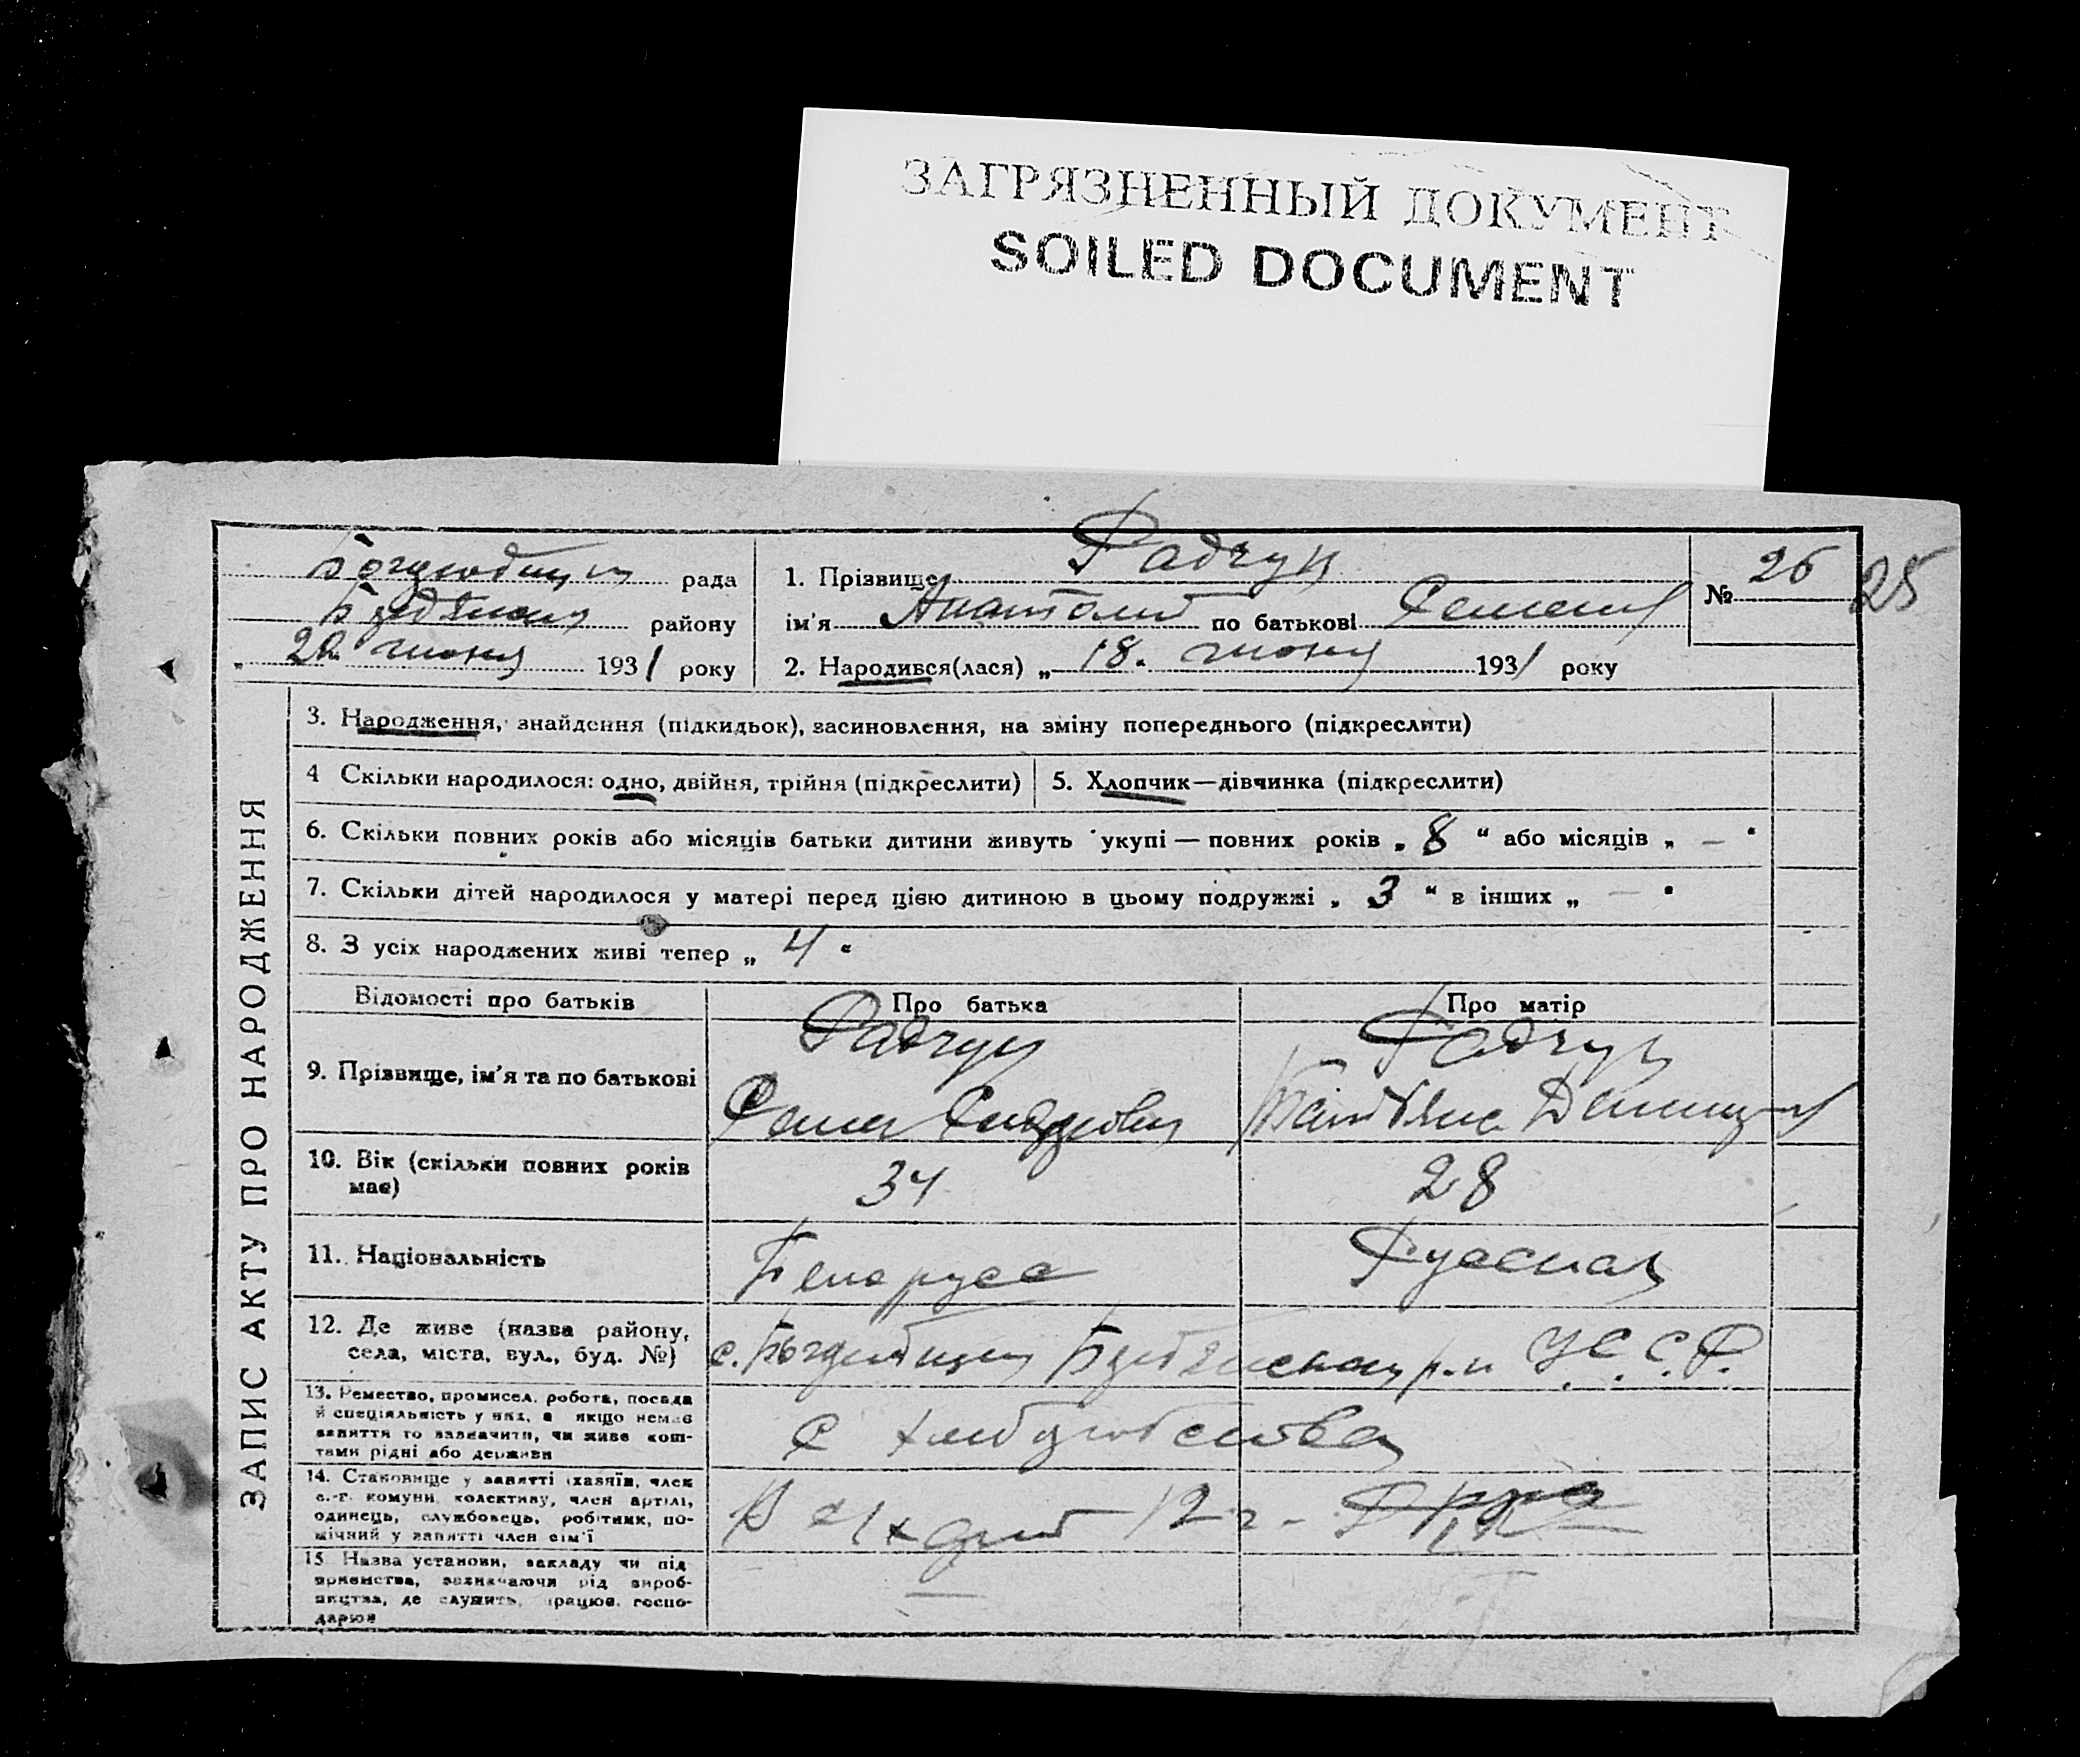 ЗАГРЯЗНЕННЫЙ ДОКУМЕНТ
SOILED DOCUMENT
рада
району
"22" июня 1931 року
1. Прізвище Радчук
ім'я Анатолий по батькові Семен
2. Народився(лася) „18. июня 1931 року
№ 26
25
ЗАПИС АКТУ ПРО НАРОДЖЕННЯ
3. Народження, знайдення (підкидьок), засиновлення, на зміну попереднього (підкреслити)
4 Скільки народилося: одно, двійня, трійня (підкреслити)
5. Хлопчик—дівчинка (підкреслити)
6. Скільки повних років або місяців батьки дитини живуть укупі — повних років „ 8 “ або місяців „ — “
7. Скільки дітей народилося у матері перед цією дитиною в цьому подружжі „ 3 “ в інших „ — “
8. З усіх народжених живі тепер „ 4 “
Відомості про батьків
Про батька
Про матір
9. Прізвище, ім'я та по батькові
Радчук
Семен
Радчук
Татьяна
10. Вік (скільки повних років має)
34
28
11. Національність
Белорусс
Русская
12. Де живе (назва району,
села, міста, вул., буд. №)
с. р-н У.С.С.Р.
13. Ремество, промисел, робота, посада
й спеціяльність у них, а якщо немає
заняття то зазначити, чи живе кош-
тами рідні або держави
С
14. Становище у занятті (хазяїн, член
с.-г. комуни, колективу, член артілі,
одинець, службовець, робітник, по-
мічний у занятті член сім'ї
15. Назва установи, закладу чи під
приємства, зазначаючи рід вироб-
ництва, де служить, працює, госпо-
дарює
—